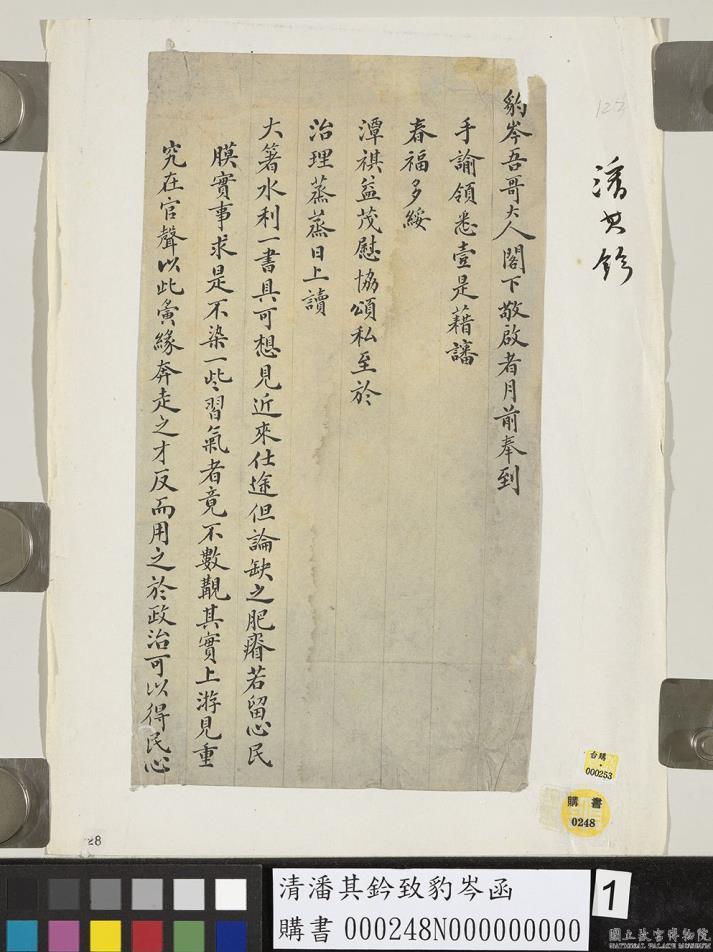 豹岑吾哥大人閣下敬啟者月前奉到
手諭領悉壹是藉讅
春福多綏
潭祺益茂慰協頌私至於
治理蒸蒸日上讀
大箸水利一書具可想見近來仕途但論缺之肥瘠若留心民
瘼實事求是不染一些習氣者竟不數觀其實上游見重
究在官聲以此夤緣奔走之才反而用之於政治可以得民心
潘其鈐
125
台購
000253
購書
0248
28
清潘其鈐致豹岑函
購書 000248N000000000
1
國立故宮博物院
NATIONAL PALACE MUSEUM